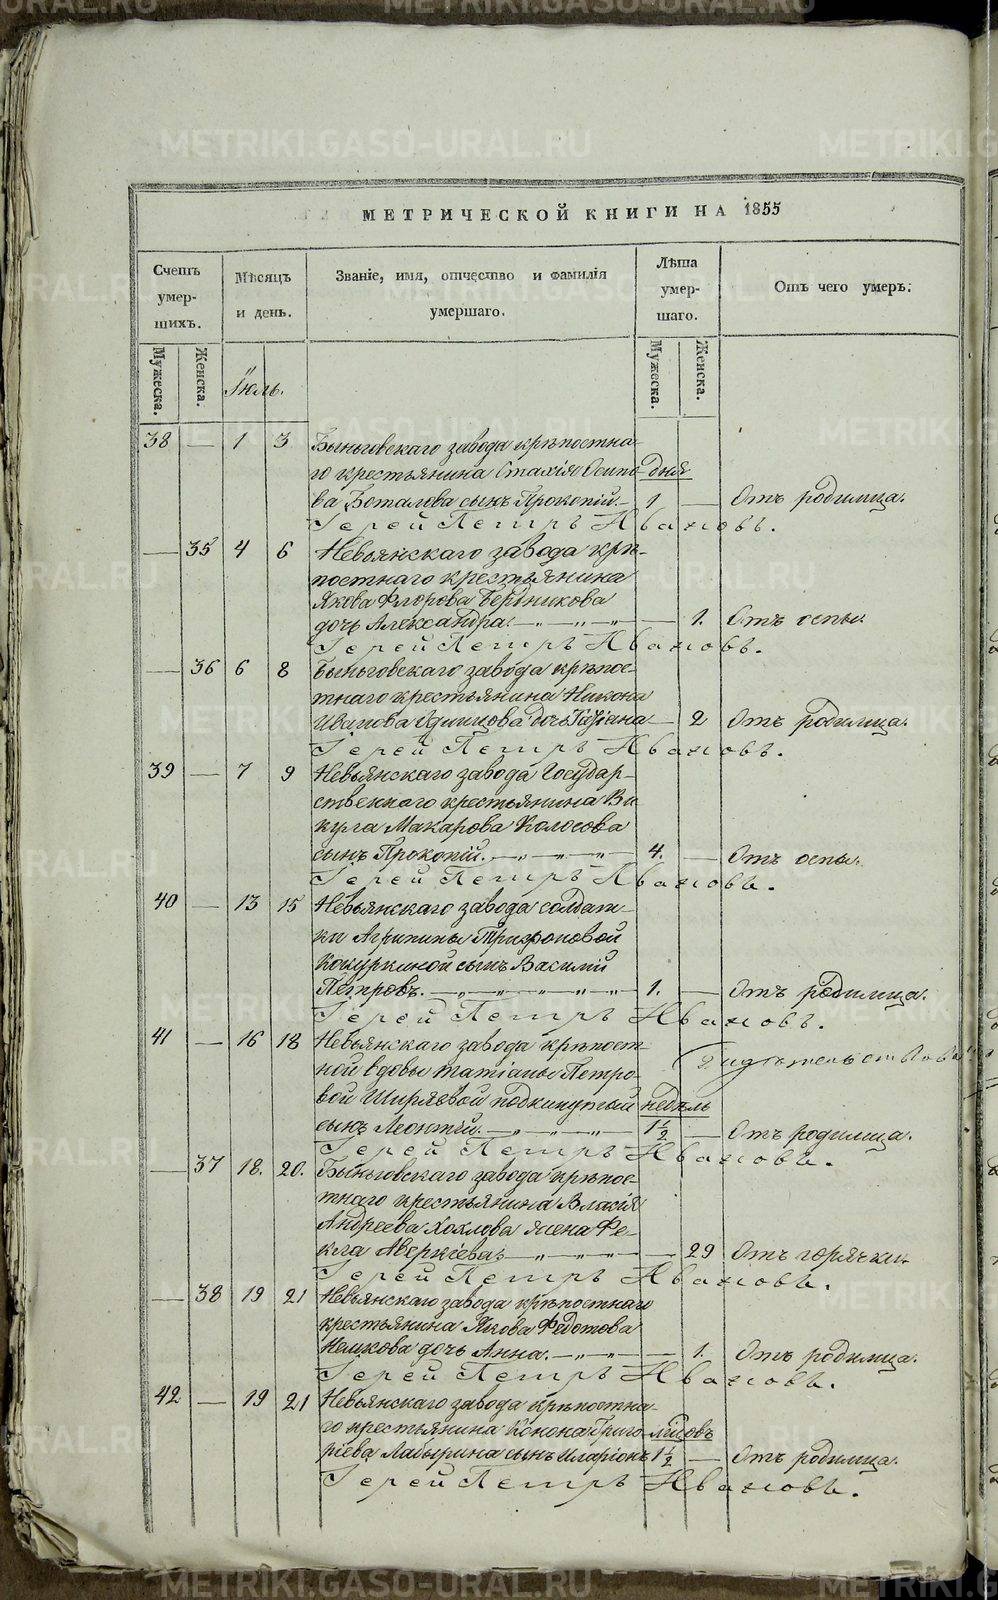 МЕТРИЧЕСКОЙ КНИГИ НА 1855
Счетъ умер-шихъ.
Мѣсяцъ и день.
Званіе, имя, отчество и фамилія умершаго.
Лѣта умер-шаго.
Отъ чего умеръ.
Мужеска.
Женска.
Мужеска.
Женска.
Іюль.
38 — 1 3 Быньговскаго завода крѣпостна-
го крестьянина Стахія Осипо- дня
ва Боталова сынъ Прокопій — 1 — Отъ родимца.
Іерей Петръ Ивановъ.
— 35 4 6 Невьянскаго завода крѣ-
постнаго крестьянина
Якова Флорова Бердникова
дочь Александра. — „ — „ — „ — 1. Отъ оспы.
Іерей Петръ Ивановъ.
— 36 6 8 Быньговскаго завода крѣпос-
тнаго крестьянина Никона
Иванова Одинцова дочь Татіана — 2 Отъ родимца.
Іерей Петръ Ивановъ.
39 — 7 9 Невьянскаго завода Государ-
ственнаго крестьянина Ви-
кула Макарова Колосова
сынъ Прокопій. — „ — „ — „ — 4. — Отъ оспы.
Іерей Петръ Ивановъ.
40 — 13 15 Невьянскаго завода солдат-
ки Агрипины Трифоновой
Кокуркиной сынъ Василій
Петровъ. — „ — „ — „ — „ — 1. — Отъ родимца.
Іерей Петръ Ивановъ.
41 — 16 18 Невьянскаго завода крѣпост-
ной вдовы Татіаны Петро-
вой Ширяевой подкинутый недѣль
сынъ Леонтій. — „ — „ — „ — 1 1/2 — Отъ родимца.
Іерей Петръ Ивановъ.
— 37 18. 20. Быньговскаго завода крѣпос-
тнаго крестьянина Власія
Андреева Хохлова жена Фе-
кла Аверкіева. — „ — „ — „ — 29 Отъ горячки.
Іерей Петръ Ивановъ.
— 38 19 21 Невьянскаго завода крѣпостнаго
крестьянина Якова Федотова
дочь Анна. — „ — „ — 1. Отъ родимца.
Іерей Петръ Ивановъ.
42 — 19 21 Невьянскаго завода крѣпостна-
го крестьянина Конона Григо-
ріева сынъ Иларіонъ 1 1/2 — Отъ родимца.
Іерей Петръ Ивановъ.
METRIKI.GASO-URAL.RU